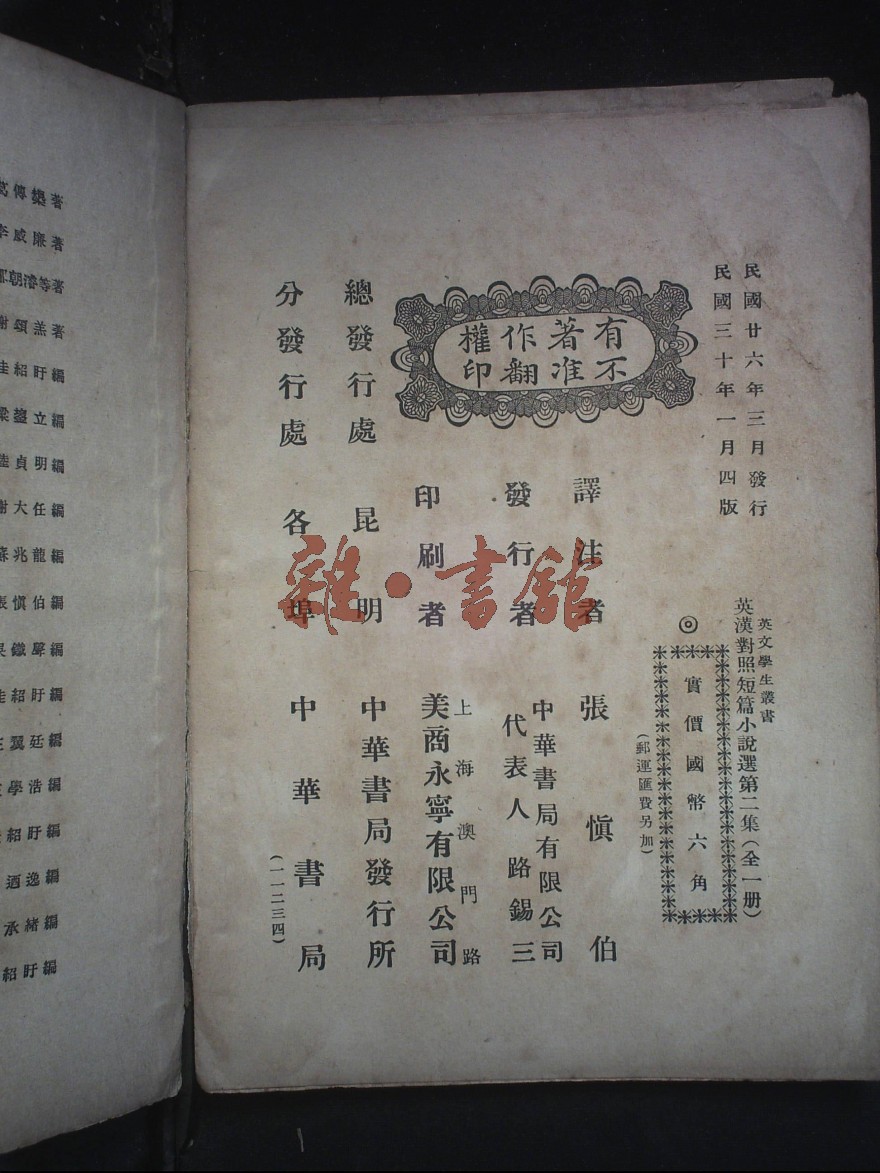 民國廿六年三月發行
民國三十年一月四版
英文學生叢書
英漢對照短篇小說選第二集(全一册)
◎實價國幣六角
(郵運匯費另加)
有著作權
不准翻印
譯注者 張愼伯
發行者 中華書局有限公司
代表人路錫三
印刷者 上海澳門路
美商永寧有限公司
總發行處 昆明 中華書局發行所
分發行處 各埠 中華書局
(一一二三四)
雜·書舘
著
李威廉著
朝濬等著
謝頌羔著
桂紹盱編
梁鋆立編
陸貞明編
謝大任編
蘇兆龍編
張愼伯編
編
桂紹盱編
翼廷編
學浩編
紹盱編
迺逸編
承緒編
紹盱編